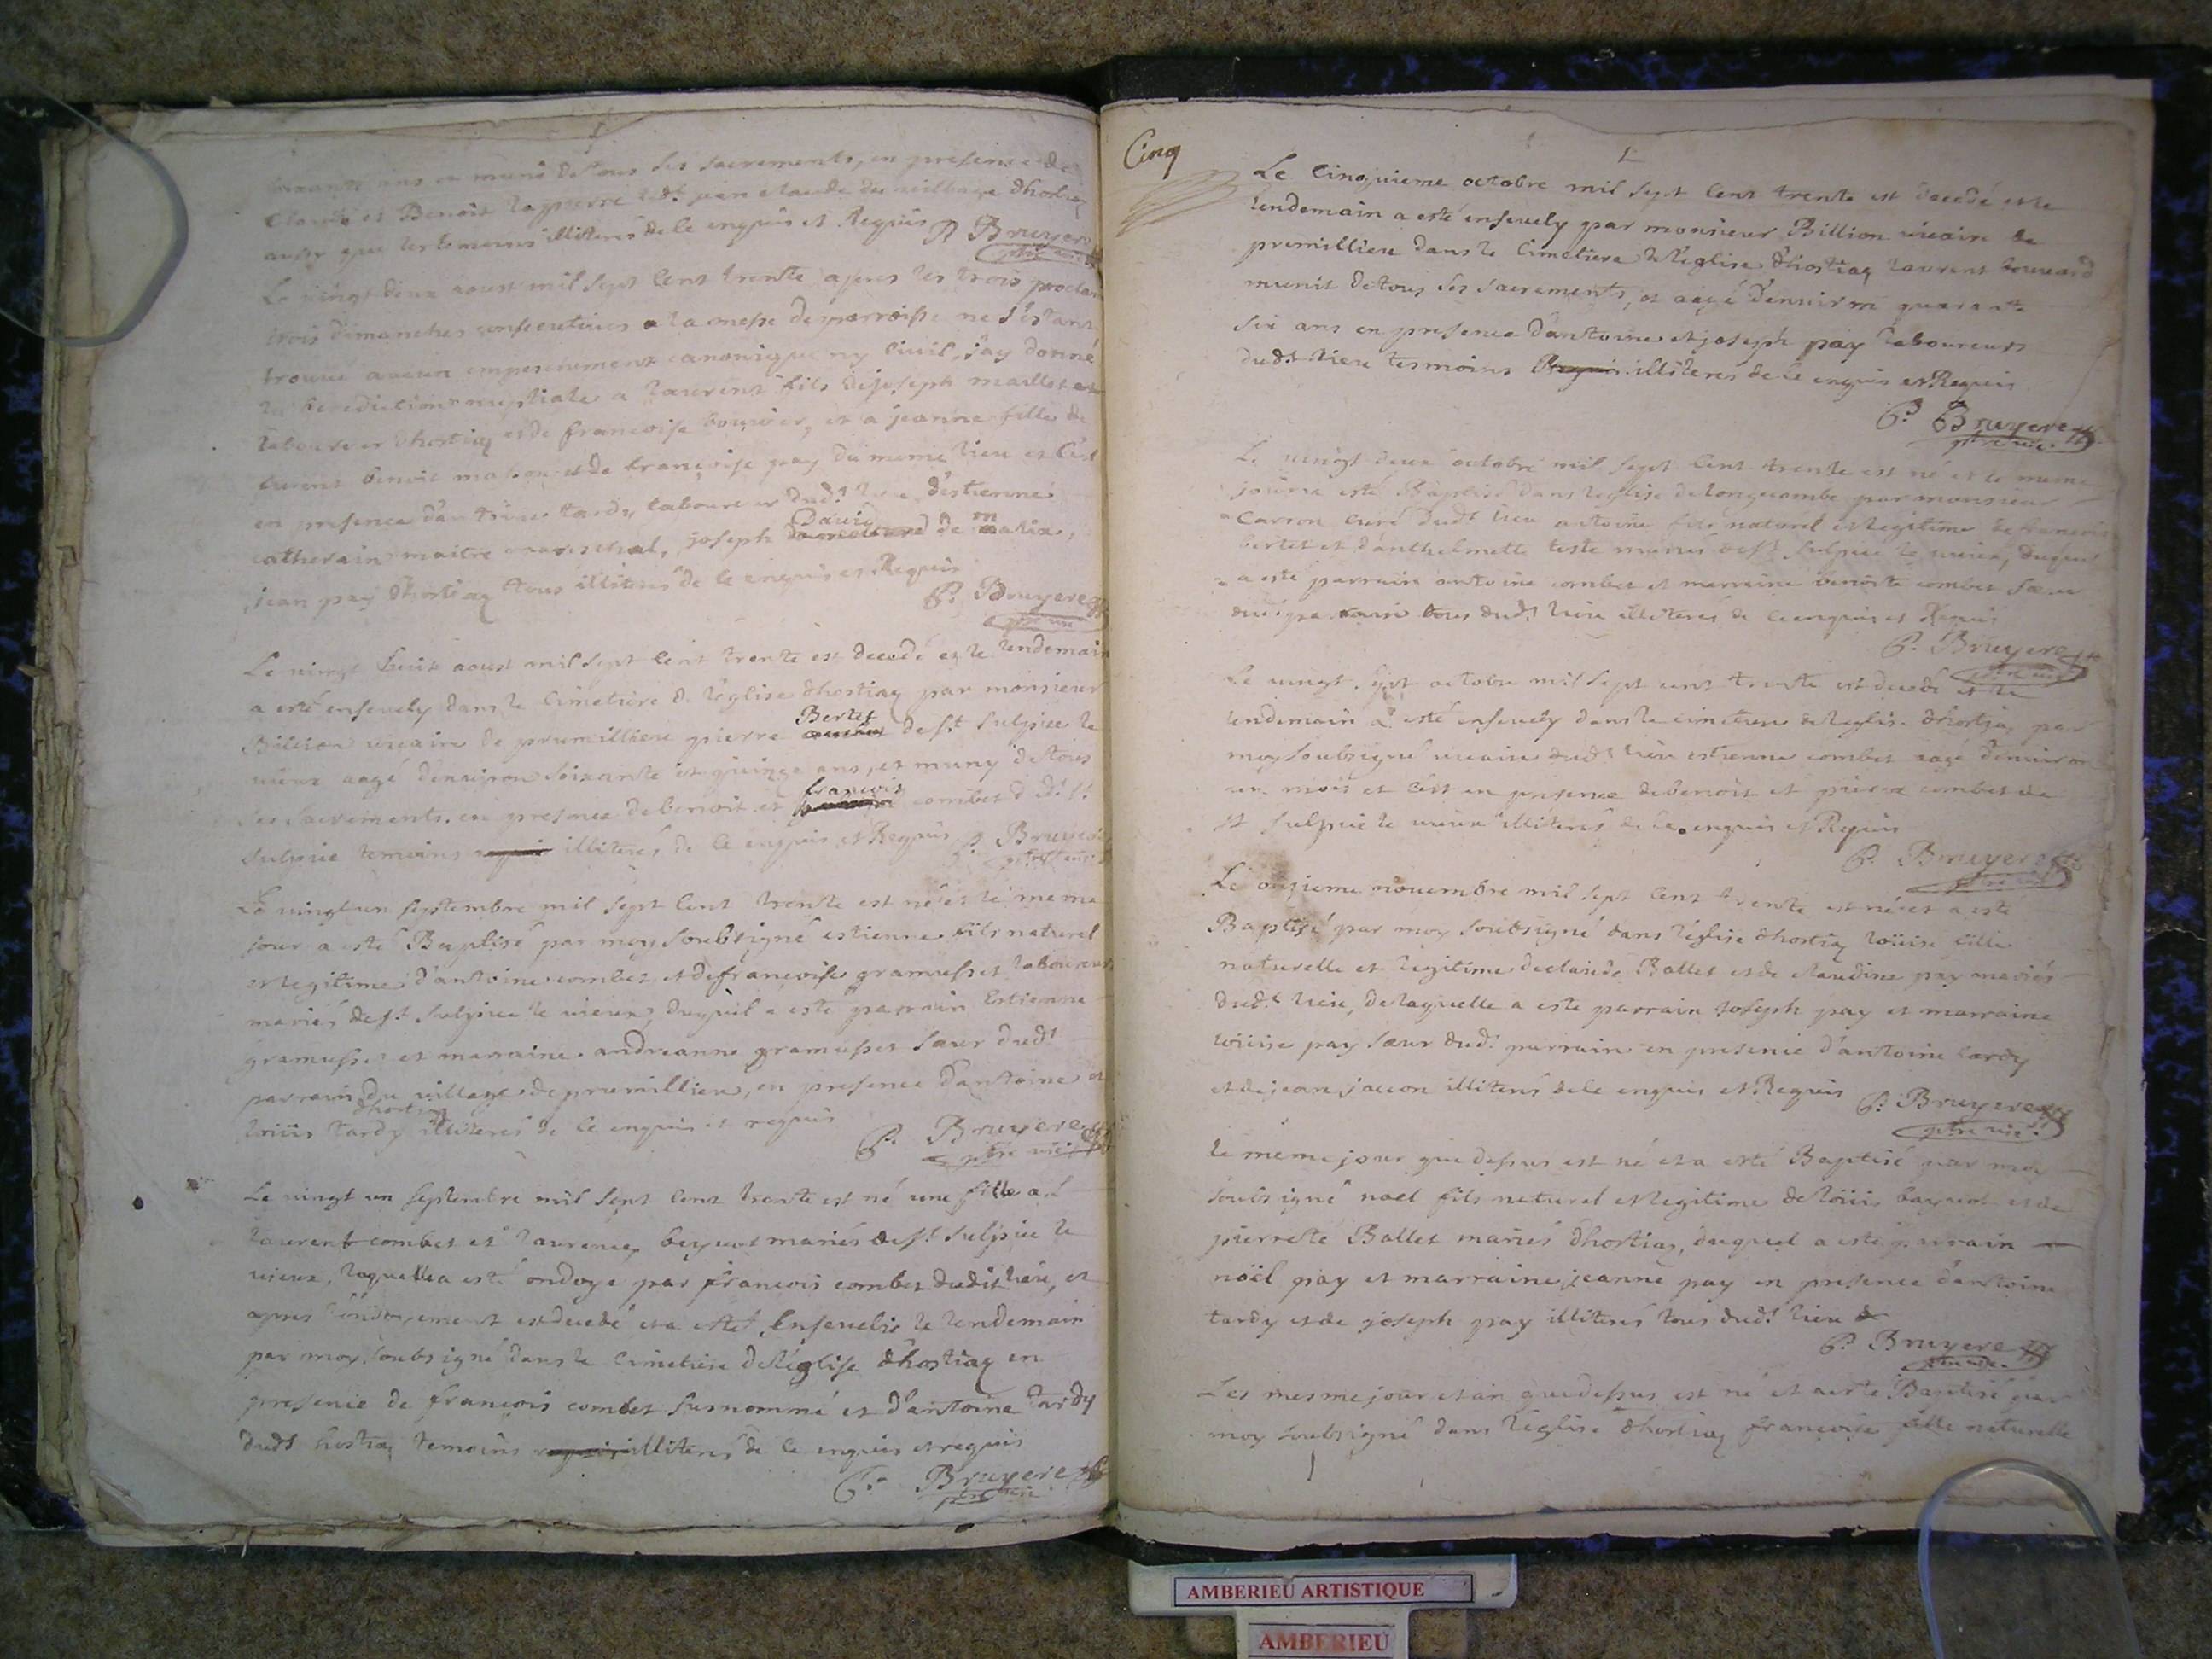 ans et muni de tous ses sacrements, en presence de
Claude et Benoit lapierre jean claude du village dhostiaz
aussy que les temoins illiteres de ce enquis et Requis P. Bruyere
ptre vic
Le vingt deux aoust mil sept cent trente apres les trois proclam
trois dimanches consecutives a la messe de parroisse ne s'estant
trouvé aucun empeschement canonique ny civil, j'ay donné
la benediction nuptiale a laurent fils de joseph maillet et
laboureur dhostiaz et de francoise bouvier, et a jeanne fille de
benoit et de françoise pay du meme lieu et c'est
en presence d'antoine tardy laboureur dudt lieu d'estienne
catherain maitre mareschal, joseph David de
jean pay dhostiaz tous illiteres de ce enquis et Requis
P. Bruyere
ptre vic
Le vingt huit aoust mil sept cent trente est decedé et le lendemain
a esté ensevely dans le cimetiere de l'eglise dhostiaz par monsieur
Billion vicaire de prumillieu pierre Bertet de st sulpice le
vieux aagé d'environ soixante et quinze ans, et muny de tous
ses sacrements. en presence de benoit et francois combet dudt st
sulpice temoins illiteres de ce enquis et Requis P. Bruyere
ptre vic
Le vingt un septembre mil sept cent trente est né et le meme
jour a esté Baptisé par moy soubsigné estienne fils naturel
et legitime d'antoine combet et de francoise gramusset laboureurs
mariés de st sulpice le vieux, duquel a esté parrain Estienne
gramusset et marraine andreanne gramusset sœur dudt
parrain du village de prumillieu, en presence d'antoine et
dhostiaz
loüis tardy illiteres de ce enquis et requis
P. Bruyere
ptre vic
Le vingt un septembre mil sept cent trente est né une fille a
laurent combet et laurence beyuat mariés de st sulpice le
vieux, laquelle a esté ondoyé par francois combet dudit lieu, et
apres l'ondoyement est decedé et a esté Ensevelie le lendemain
par moy soubsigné dans le cimetiere de l'église dhostiaz en
presence de francois combet susnommé et d'antoine tardy
dudt hostiaz temoins illiteres de ce enquis et requis
P. Bruyere
ptre vic
Cinq
Le Cinquieme octobre mil sept cent trente est decedé et le
lendemain a esté ensevely par monsieur Billion vicaire de
premillieu dans le Cimetiere de l'eglise dhostiaz laurent bouvard
munit de tous ses sacrements, et aagé d'environ quarante
six ans en presence d'antoine et joseph pay laboureurs
dudt lieu tesmoins illiteres de ce enquis et Requis
P. Bruyere
ptre vic.
Le vingt deux octobre mil sept cent trente est né et le meme
jour a esté Baptisé dans l'eglise de longecombe par monsieur
Carron curé dudt lieu antoine fils naturel et legitime de francois
bertet et d'anthelmette teste mariés de st sulpice le vieux, duquel
a esté parrain antoine combet et marraine benoite combet sœur
dudt parrain tous dudt lieu illiteres de ce enquis et Requis
P. Bruyere
ptre vic
Le vingt sept octobre mil sept cent trente est decedé et le
lendemain a esté ensevely dans le cimetiere de l'eglise dhostiaz par
moy soubsigné vicaire dudt lieu estienne combet aagé d'environ
un mois et c'est en presence de benoit et pierre combet de
st sulpice le vieux illiteres de ce enquis et Requis
P. Bruyere
ptre vic
Le onzieme novembre mil sept cent trente est né et a esté
Baptisé par moy soubsigné dans l'église dhostiaz loüise fille
naturelle et legitime de claude Ballet et de claudine pay mariés
dudt lieu, de laquelle a esté parrain joseph pay et marraine
loüise pay sœur dudt parrain en presence d'antoine tardy
et de jean jaccon illiteres de ce enquis et Requis P. Bruyere
ptre vic
le méme jour que dessus est né et a esté Baptisé par moy
soubsigné noel fils naturel et legitime de loüis bayuat et de
pierrete Ballet mariés dhostiaz, duquel a esté parrain
noël pay et marraine jeanne pay en presence d'antoine
tardy et de joseph pay illiteres tous dudt lieu
P. Bruyere
ptre vic.
Les mesme jour et an que dessus est né et a esté Baptisé par
moy soubsigné dans l'église dhostiaz françoise fille naturelle
AMBERIEU ARTISTIQUE
AMBERIEU